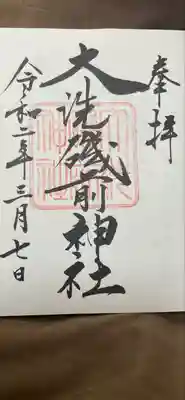 奉拝
大洗磯前神社
令和二年三月七日